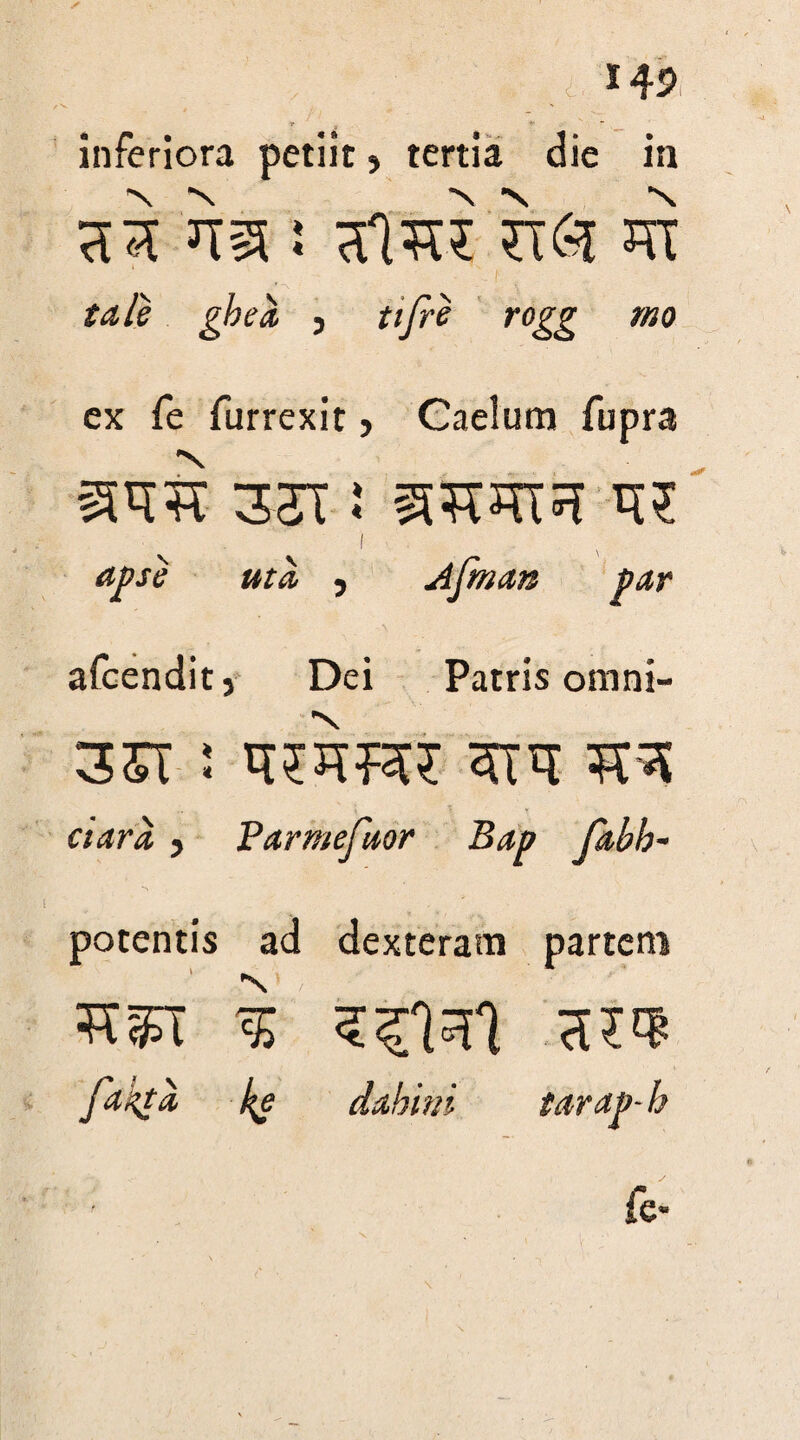 149
inferiora petiit, tertia die in
तले गेअ : तीसरे रोज मो
tale gheà , tiſrè rogg mo
ex ſe ſurrexit, Caelum ſupra
अपसे उठा : असमान पर
apsè utà , Aſman par
aſcendit, Dei Patris omni-
चढा : परमेस्वर बाप सभ
ciarà , Parmeſuor Bap ſabh-
potentis ad dexteram partem
सक्ता के दहीनी तरफ
ſaktà ke dahini tarap-h
ſe-